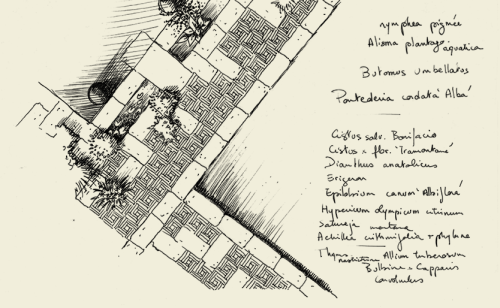 nymphea pigmée
Alisma plantago aquatica
Butomus umbellatus
Pontederia cordata 'Alba'
Cistus salv. Bonifacio
Cistus x flor. 'Tramontane'
Dianthus anatolicus
Erigeron
Epilobium canum 'Albiflora'
Hypericum olympicum citrinum
Satureja montana
Achillea crithmifolia +
Thymus Allium tuberosum
Bulbine + Capparis
convolvulus